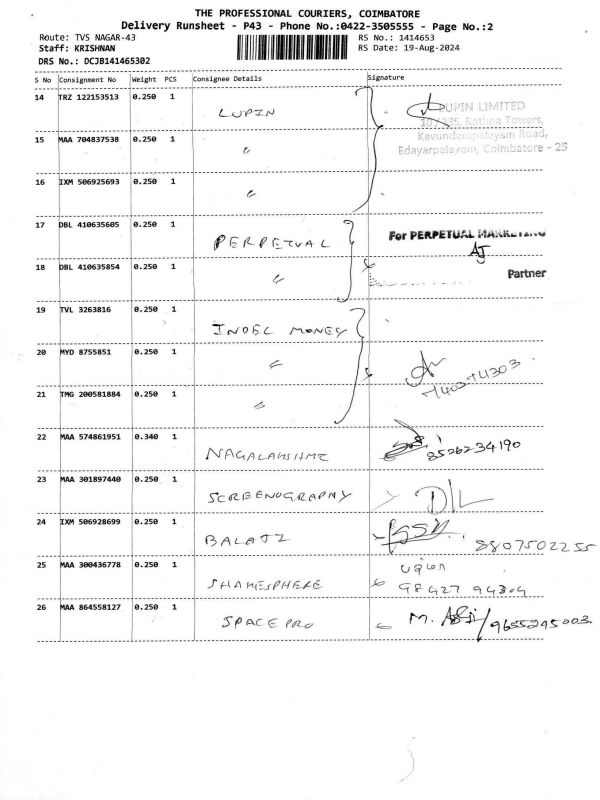 THE PROFESSIONAL COURIERS, COIMBATORE
Delivery Runsheet - P43 - Phone No.:0422-3505555 - Page No.:2
Route: TVS NAGAR-43 RS No.: 1414653
Staff: KRISHNAN RS Date: 19-Aug-2024
DRS No.: DCJB141465302
S No Consignment No Weight PCS Consignee Details Signature
14 TRZ 122153513 0.250 1 LUPIN
LUPIN LIMITED
107/135, Rathna Towers,
Kavundampalayam Road,
Edayarpalayam, Coimbatore - 25
15 MAA 704837538 0.250 1 "
16 IXM 506925693 0.250 1 "
17 DBL 410635605 0.250 1 PERPETUAL For PERPETUAL MARKETING
18 DBL 410635854 0.250 1 " Partner
19 TVL 3263816 0.250 1 INDEL MONEY
20 MYD 8755851 0.250 1 "
21 TMG 200581884 0.250 1 "
22 MAA 574861951 0.340 1 NAGALAKSHMI 8526234190
23 MAA 301897440 0.250 1 SCREENOGRAPHY D/L
24 IXM 506928699 0.250 1 BALAJI 8807502255
25 MAA 300436778 0.250 1 98427 94304
26 MAA 864558127 0.250 1 SPACE PRO M. 9655295003